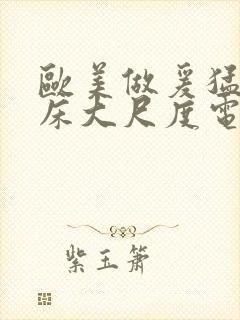 歐美做爰猛
床大尺度電
紫玉簫